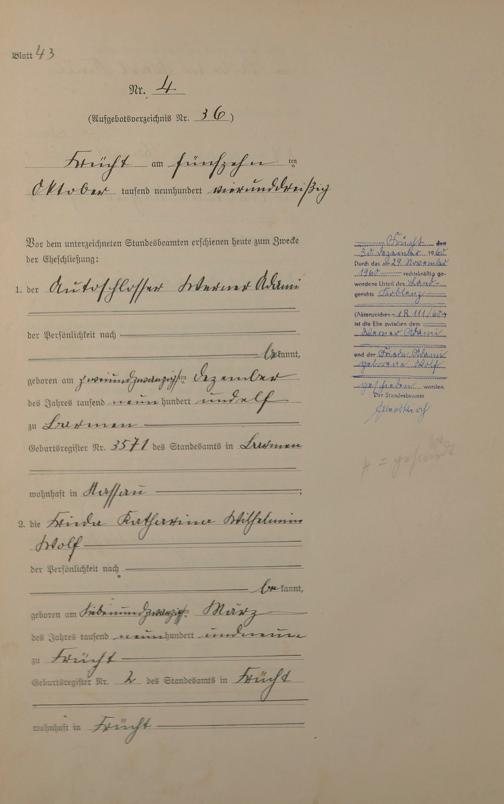 Blatt 43
Nr. 4
(Aufgebotsverzeichnis Nr. 36)
Frücht am fünfzehn ten
Oktober tausend neunhundert vierunddreißig
Vor dem unterzeichneten Standesbeamten erschienen heute zum Zwecke
der Eheschließung:
1. der Autoschlosser Werner Adami
der Persönlichkeit nach
bekannt,
geboren am zweiundzwanzigsten Dezember
des Jahres tausend neunhundert undelf
zu Barmen
Geburtsregister Nr. 3571 des Standesamts in Barmen
wohnhaft in Nassau ;
2. die Frieda Katharina Wilhelmine
Wolf
der Persönlichkeit nach
bekannt,
geboren am siebenundzwanzigsten März
des Jahres tausend neunhundert undneun
zu Frücht
Geburtsregister Nr. 2 des Standesamts in Frücht
wohnhaft in Frücht
Frücht den
30 Dezember 1960
Durch das am 29. November
1960 rechtskräftig ge-
wordene Urteil des Land-
gerichts Koblenz
(Aktenzeichen R 111/60)
ist die Ehe zwischen dem
Werner Adami
und der Frieda Adami
geborene Wolf
geschieden worden.
Der Standesbeamte